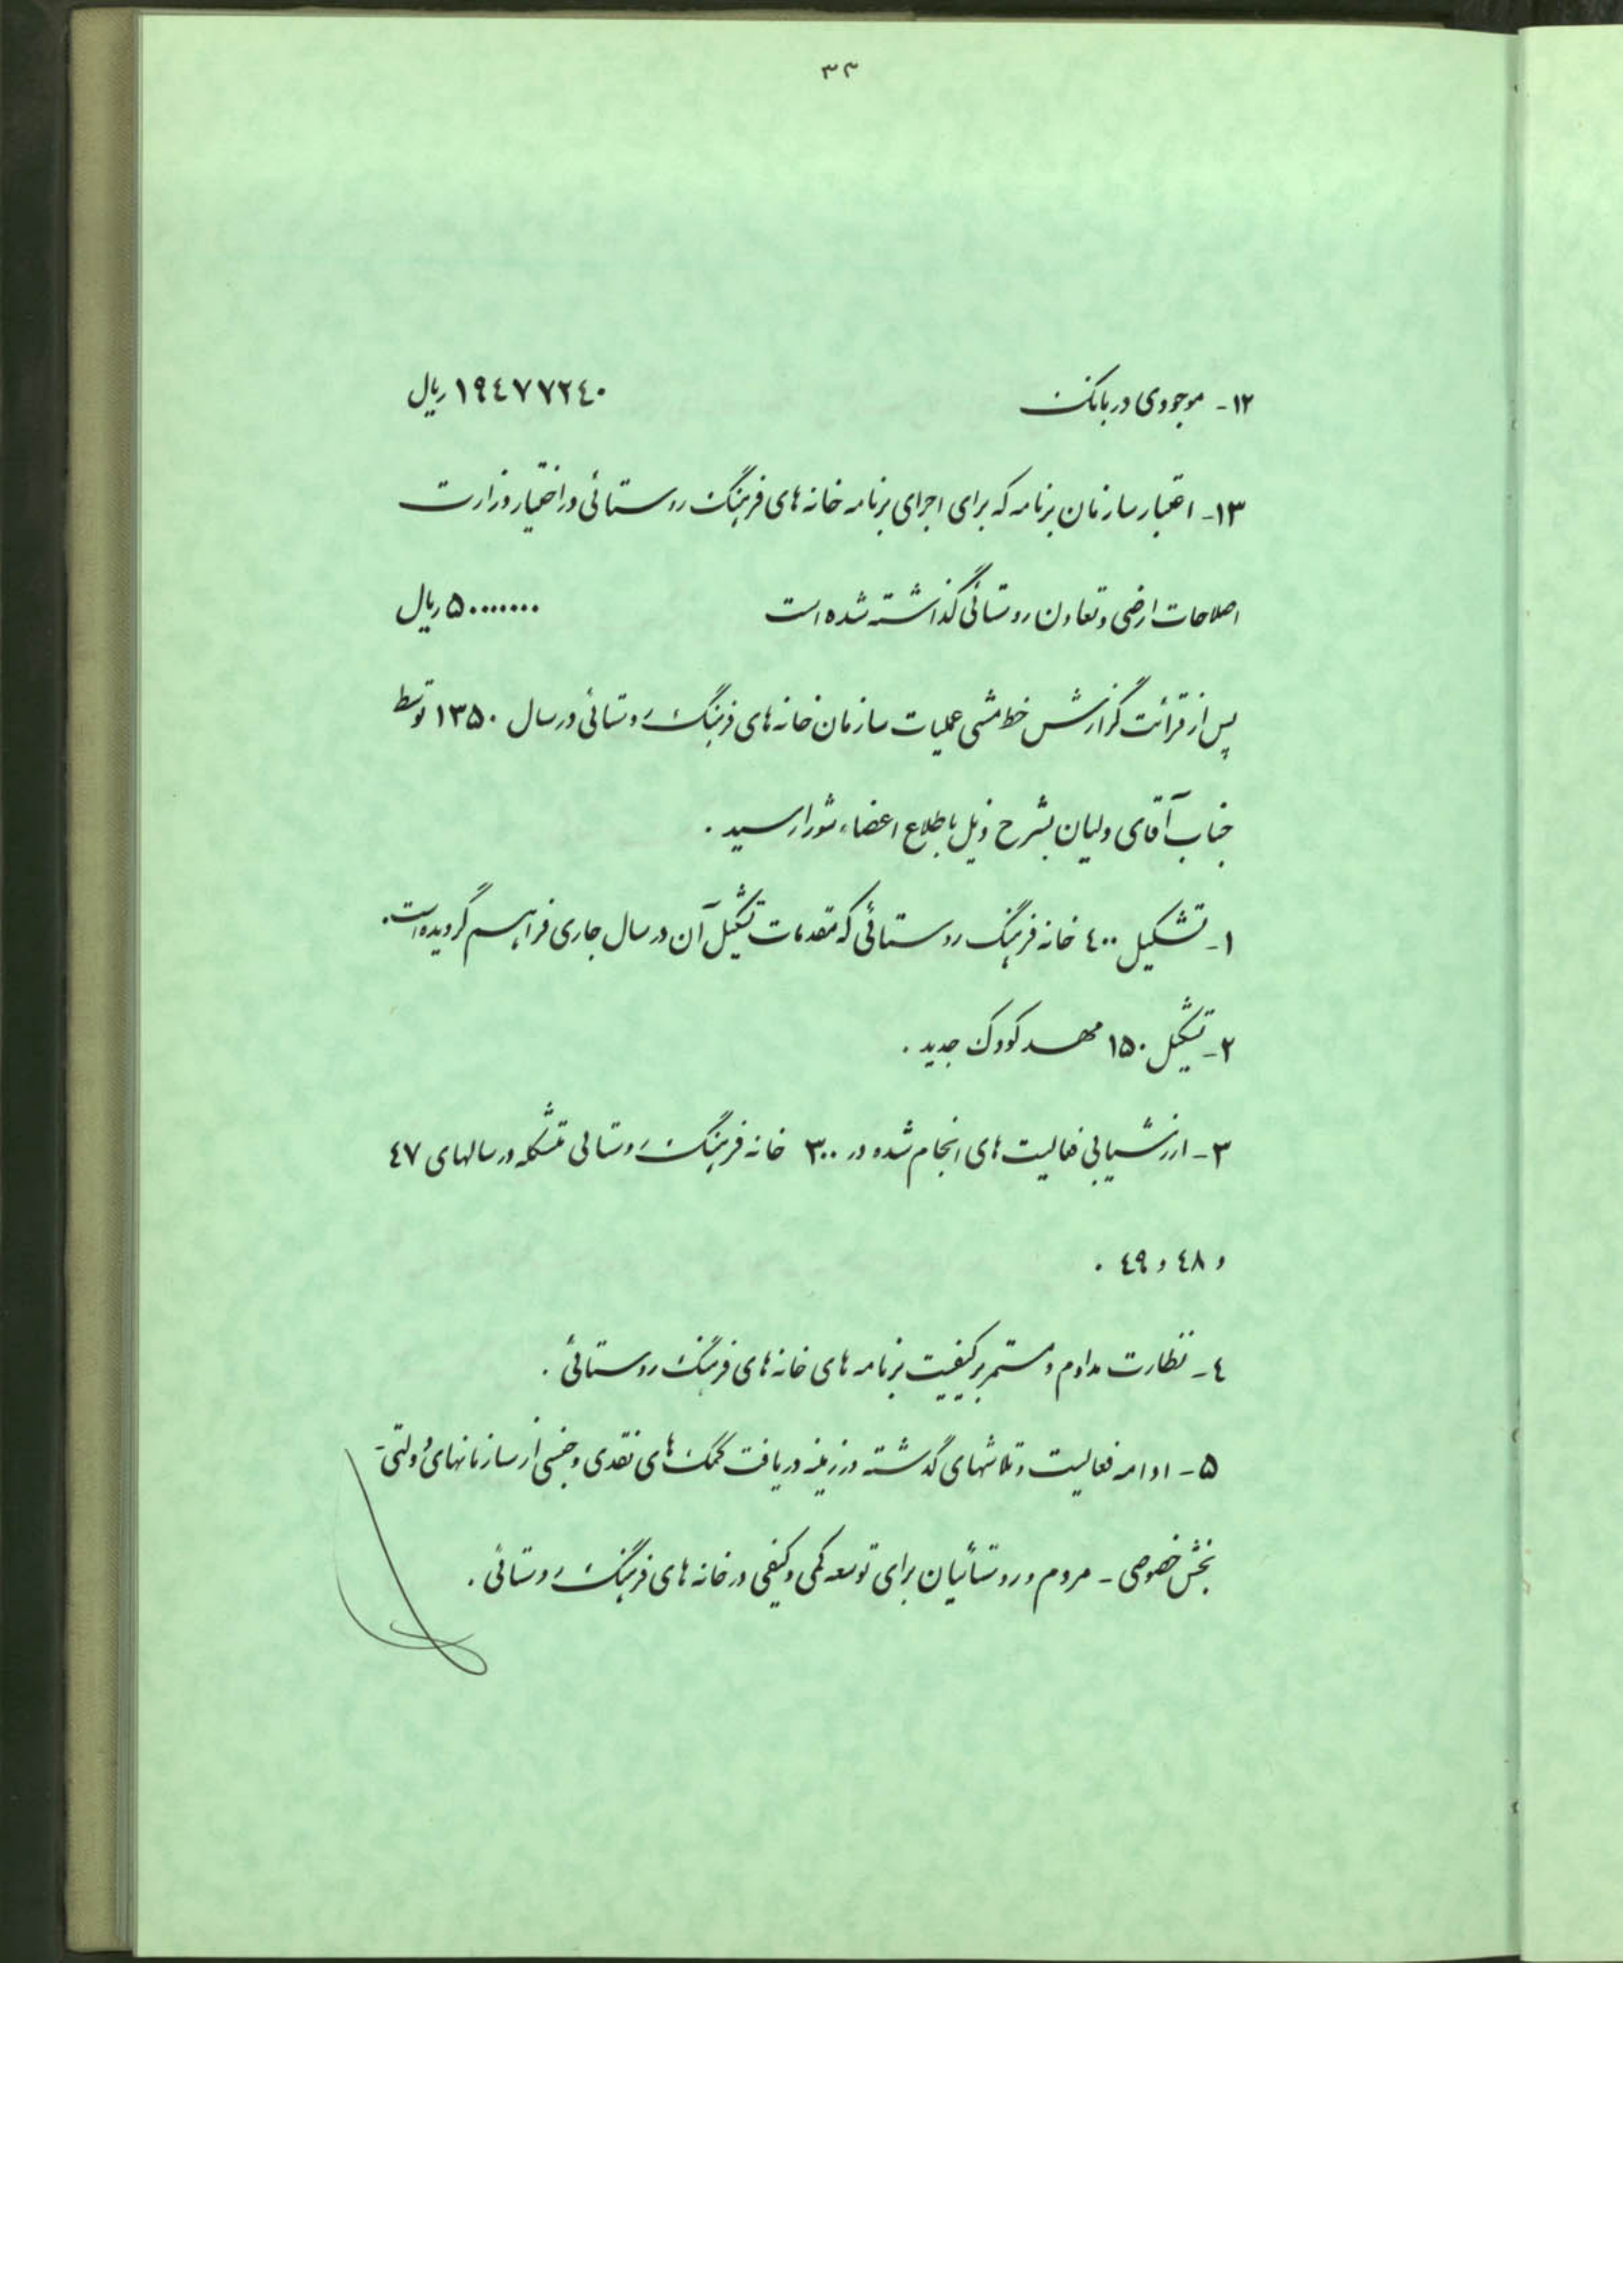 ۳۳
۱۲- موجودی در بانک ۱۹٤۷۷۲٤۰ ریال
۱۳- اعتبار سازمان برنامه که برای اجرای برنامه خانه های فرهنگ روستائی در اختیار وزارت
اصلاحات ارضی و تعاون روستائی گذاشته شده است ۵۰۰۰۰۰۰۰ ریال
پس از قرائت گزارش خط مشی عملیات سازمان خانه های فرهنگ روستائی در سال ۱۳۵۰ توسط
جناب آقای ولیان بشرح ذیل باطلاع اعضاء شورا رسید .
۱- تشکیل ٤۰۰ خانه فرهنگ روستائی که مقدمات تشکیل آن در سال جاری فراهم گردیده است.
۲- تشکیل ۱۵۰ مهد کودک جدید .
۳- ارزشیابی فعالیت های انجام شده در ۳۰۰ خانه فرهنگ روستائی متشکله در سالهای ٤۷
و ٤۸ و ٤۹ .
٤- نظارت مداوم و مستمر بر کیفیت برنامه های خانه های فرهنگ روستائی .
۵- ادامه فعالیت و تلاشهای گذشته در زمینه دریافت کمک های نقدی و جنسی از سازمانهای دولتی-
بخش خصوصی - مردم و روستائیان برای توسعه کمی و کیفی در خانه های فرهنگ روستائی .